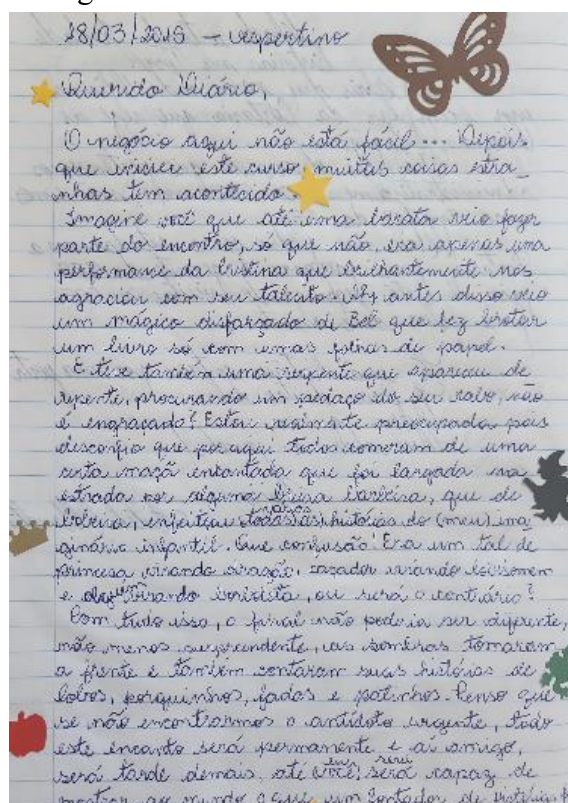 28/03/2019 – vespertino
Querido Diário,
O negócio aqui não está fácil... Depois
que iniciei este curso, muitas coisas estra_
nhas tem acontecido.
Imagine você que até uma barata veio fazer
parte do encontro, só que não, era apenas uma
performance da Cristina que brilhantemente nos
agraciou com seu talento. Ah, antes disso veio
um mágico disfarçado de Bel que fez brotar
um livro só com umas folhas de papel.
E teve também uma serpente que apareceu de
repente, procurando um pedaço do seu rabo, não
é engraçado? Estou realmente preocupada pois
desconfio que por aqui todos comeram de uma
certa maçã encantada que foi largada na
estrada por alguma bruxa barbeira, que de
bobeira, enfeitiçou várias histórias do (meu) ima_
ginário infantil. Que confusão! Era um tal de
princesa virando dragão, caçador virando lobisomem
e alguém virando, ou será o contrário?
Com tudo isso, o final não podia ser diferente,
não menos surpreendente, as sombras tomaram
a frente e também contaram suas histórias de
lobos, porquinhos, fadas e patinhos. Penso que
se não encontrarmos o antídoto urgente, todo
este encanto será permanente e aí amigo,
será tarde demais, até eu serei capaz de
mostrar ao mundo o que um contador de histórias